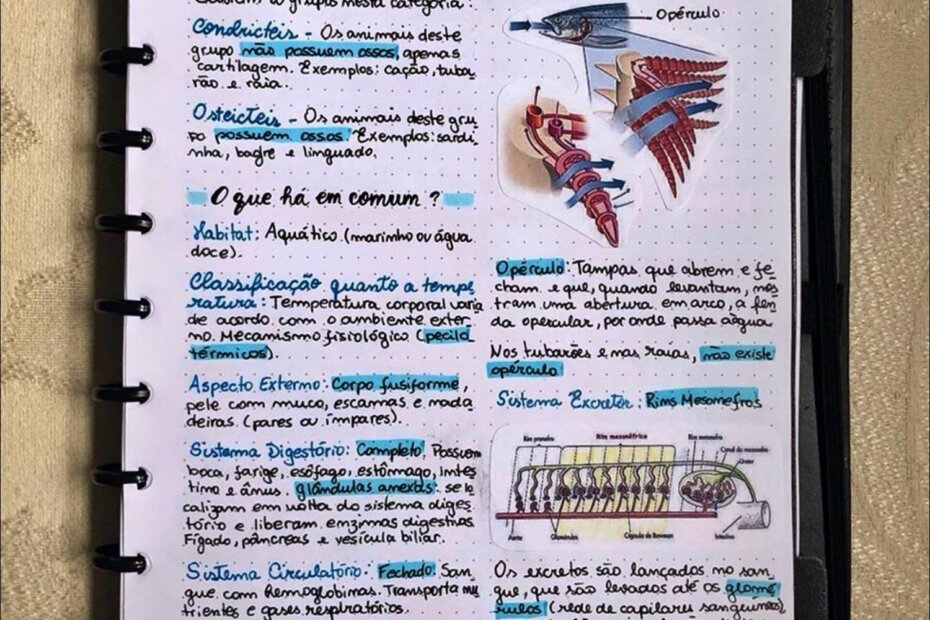 grupos nesta categoria:
Condricteis - Os animais deste
grupo não possuem ossos, apenas
cartilagem. Exemplos: cação, tuba
rão e raia.
Osteicteis - Os animais deste gru
po possuem ossos. Exemplos: sardi
nha, bagre e linguado.
O que há em comum?
Habitat: Aquático (marinho ou água
doce).
Classificação quanto a tempe
ratura: Temperatura corporal varia
de acordo com o ambiente exter
no. Mecanismo fisiológico (pecilo
térmicos).
Aspecto Externo: Corpo fusiforme,
pele com muco, escamas e nada
deiras. (pares ou ímpares).
Sistema Digestório: Completo. Possuem
boca, farige, esôfago, estômago, intes
tino e ânus. glândulas anexas: se lo
calizam em volta do sistema diges
tório e liberam enzimas digestivas
Fígado, pâncreas e vesícula biliar.
Sistema Circulatório: Fechado. San
gue com hemoglobinas. Transporta nu
trientes e gases respiratórios.
Opérculo
Opérculo: Tampas que abrem e fe
cham e que, quando levantam, mos
tram uma abertura em arco, a fen
da opercular, por onde passa a água
Nos tubarões e nas raias, não existe
opérculo
Sistema Excretor: Rins Mesonefros
Rim pronefro
Rim mesonéfrico
Rim metanefro
Canal do mesonefro
Ureter
Aorta
Glomérulos
Cápsula de Bowman
Intestino
Os excretos são lançados no san
gue, que são levados até os glomé
rulos (rede de capilares sanguíneos)